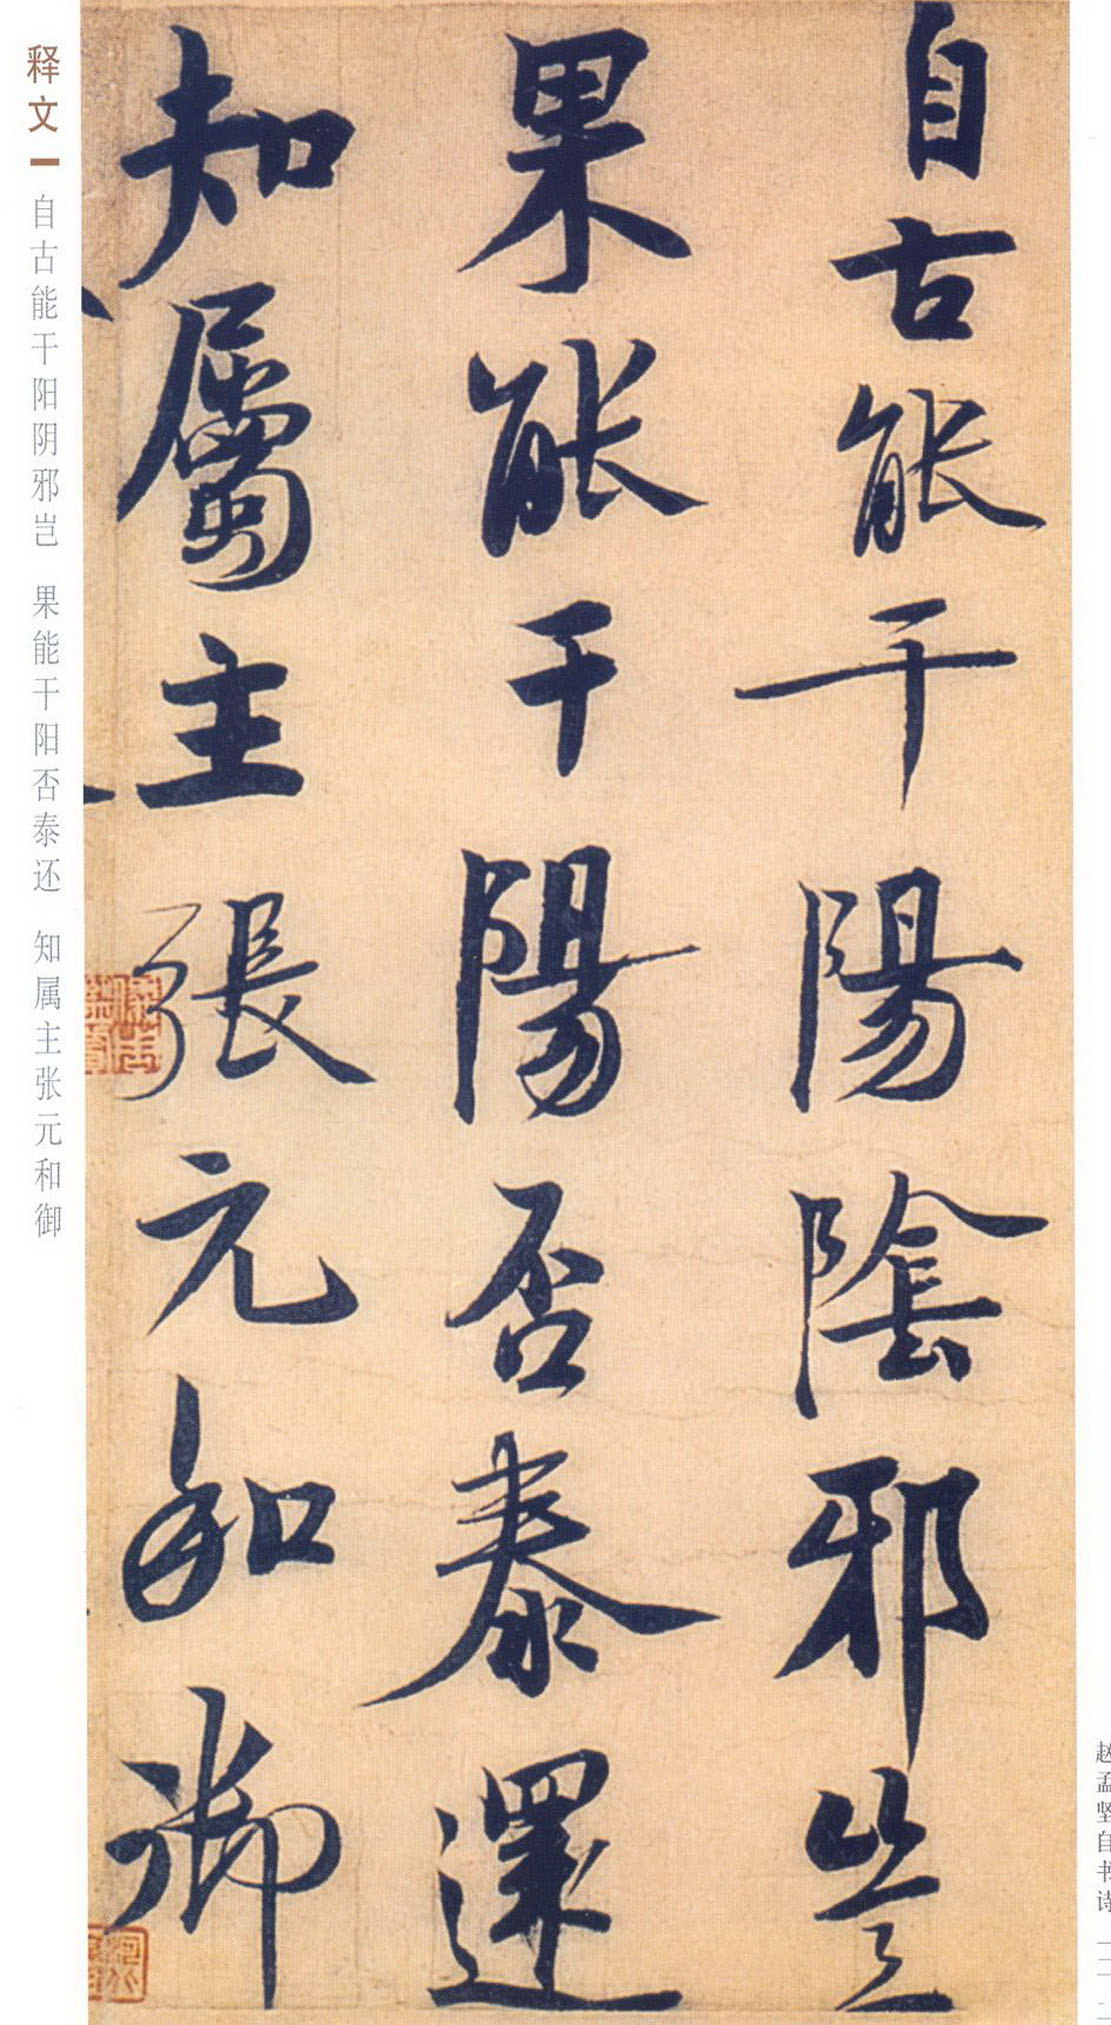 自古能干陽陰邪岂
果能干陽否泰還
知屬主張元和御
释文
自古能干阳阴邪岂 果能干阳否泰还 知属主张元和御
赵孟坚自书诗